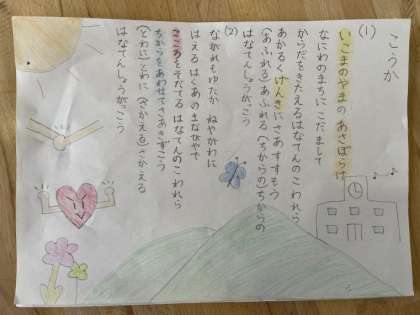 こうか
(1)
いこまのやまの あさぼらけ
なにわのまちに こだまして
からだをきたえる はなてんの こ われら
あかるく げんきに さあ すすもう
(あふれる)あふれる(ちからの)ちからの
はなてんしょうがっこう
(2)
ながれも ゆたか ねやがわに
はえる はくあの まなびやで
こころを そだてる はなてんの こ われら
ちからを あわせて きずこう
(とわに)とわに(さかえる)さかえる
はなてんしょうがっこう